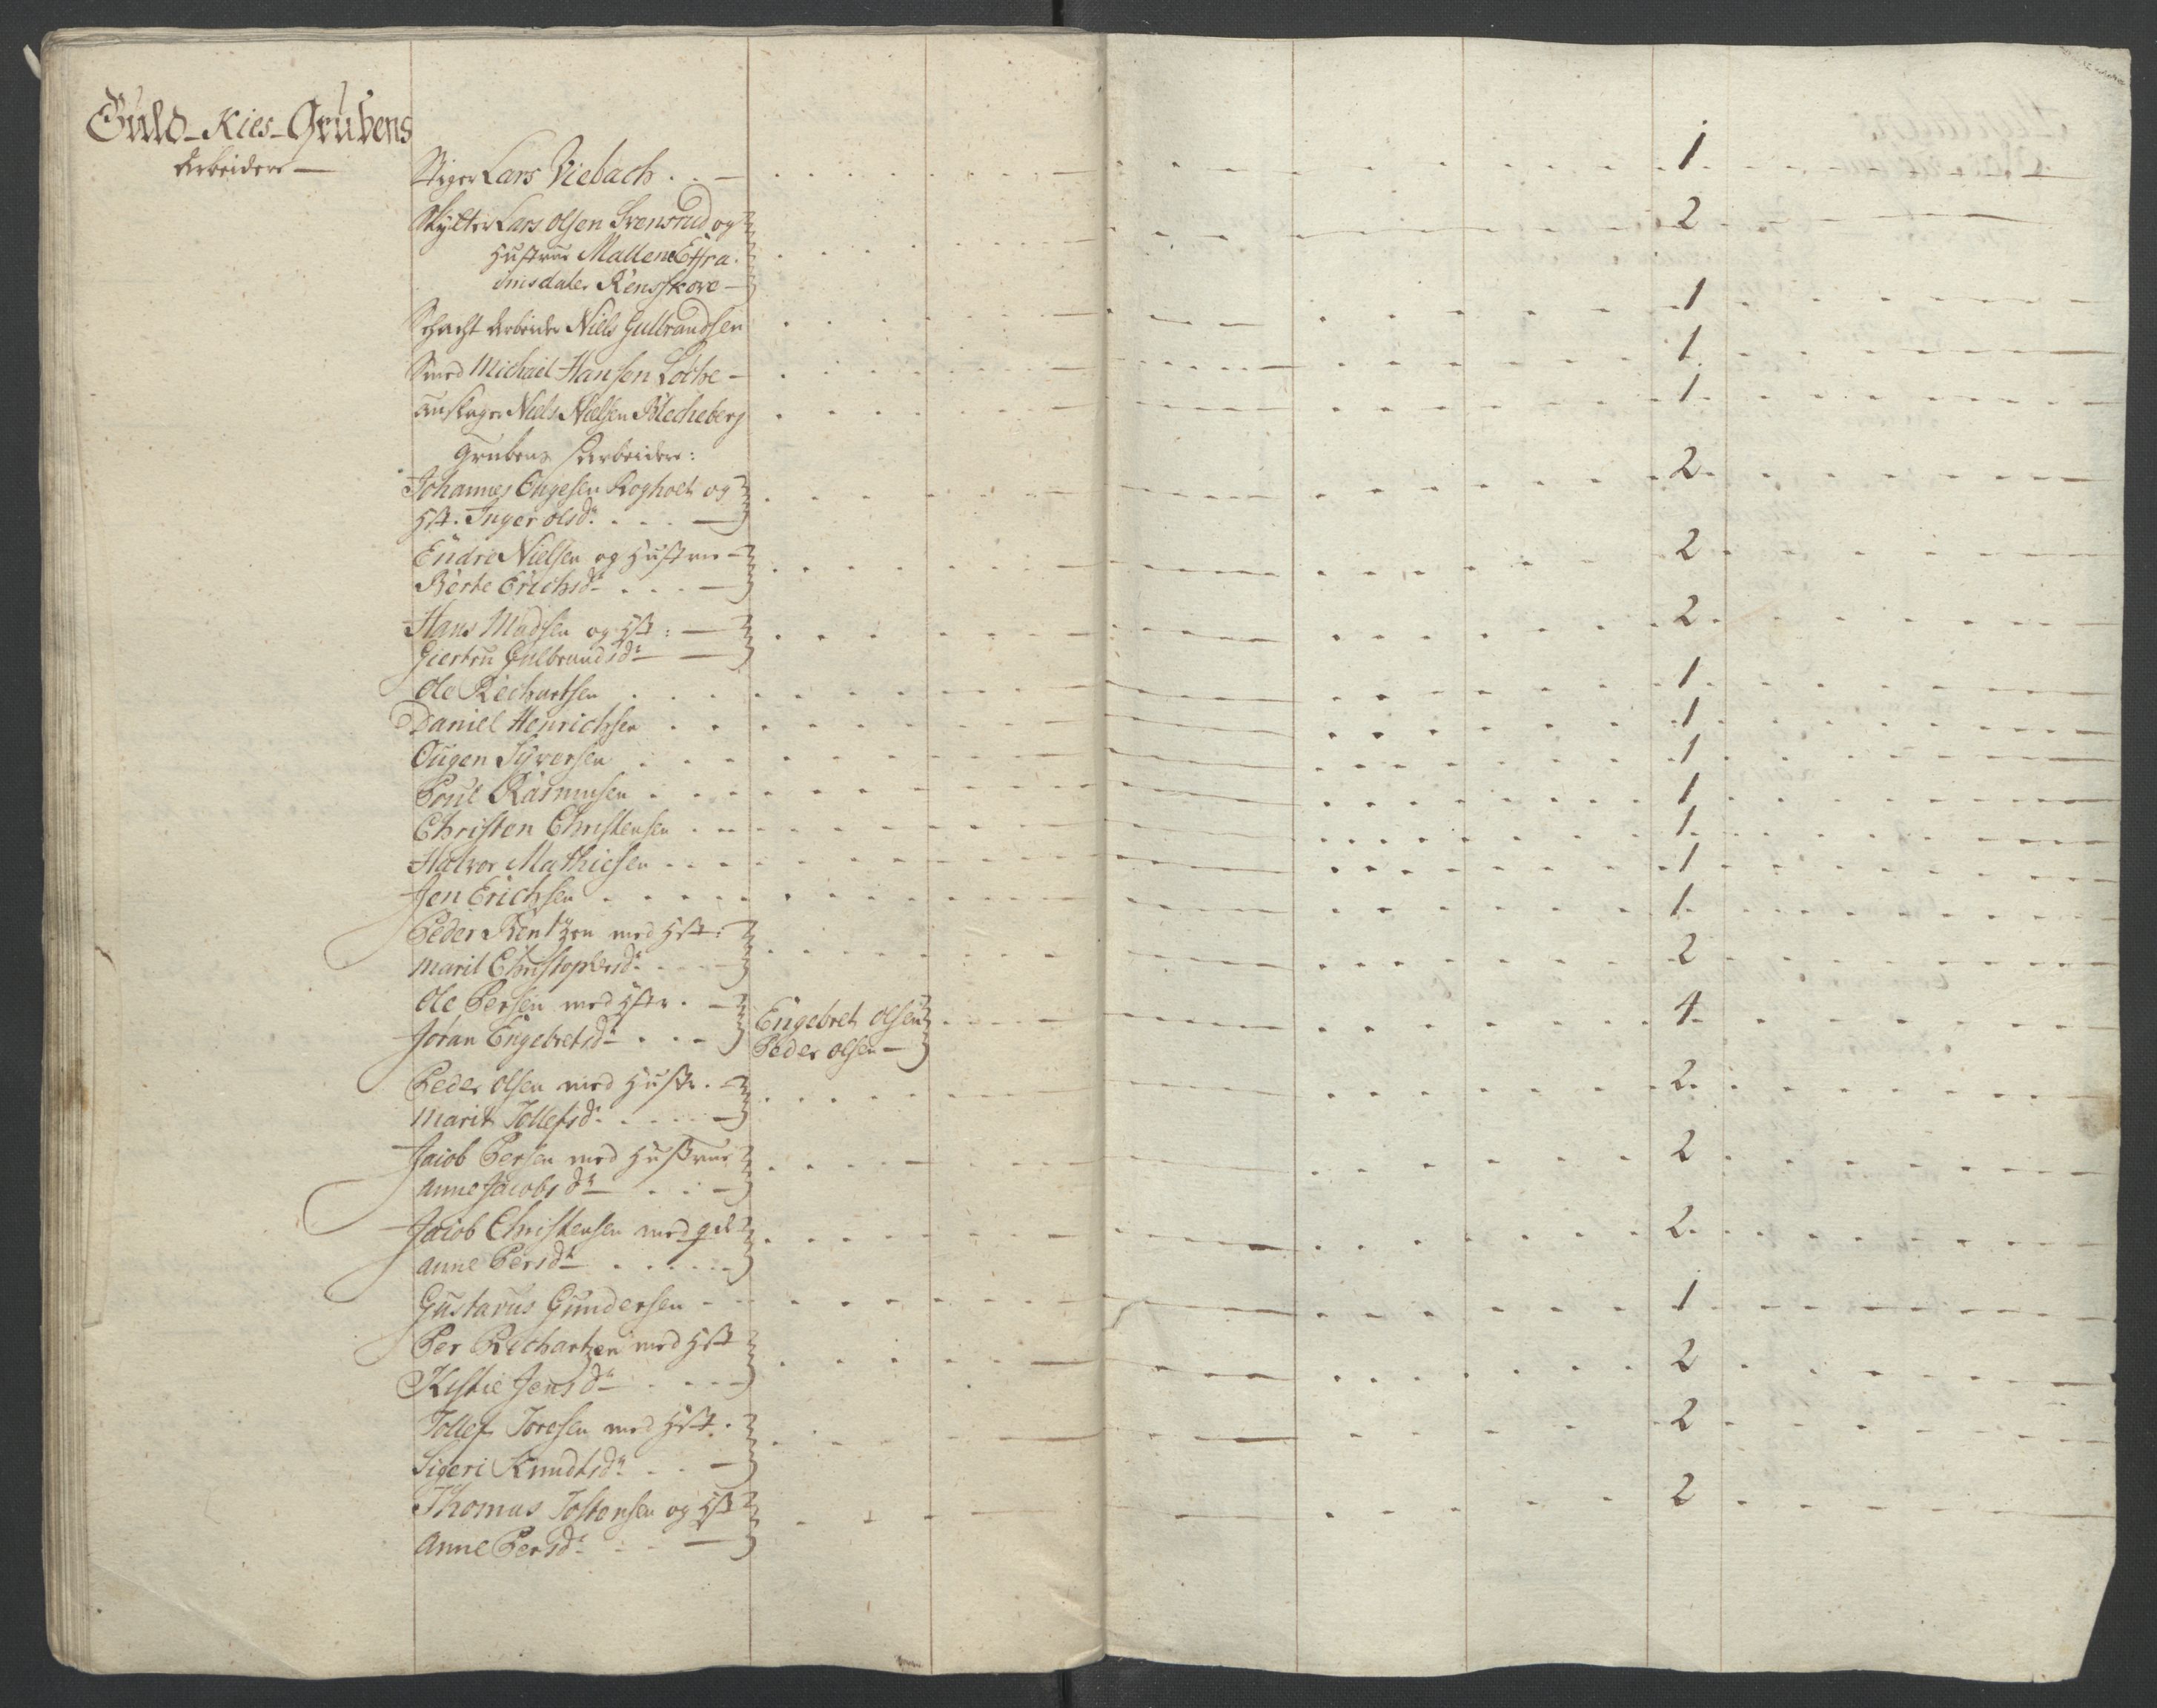 Guld-Kies-Grubens
Arbeidere
Stiger Lars Viebach 1
Skytter Lars Olsen Svensrud og 2
Hustrue Mallene
Schacht Arbeider Niels Gulbrandsen 1
Smed Michael Hansen Lothe 1
anslager Niels Nielsen Blecheberg 1
Grubens Arbeidere:
Johannes Engesen og 2
Hst. Inger Olsdr
Endre Nielsen og Hustrue 2
Berte Erichsdr
Hans Madsen og Hst: 2
Giertru Gulbrandsdr
Ole Rechartsen 1
Daniel Henrichsen 1
Ougen Syversen 1
Poul Rasmusen 1
Christen Christensen 1
Halvor Mathiesen 1
Jen Erichsen 1
Peder Bentzen med Hst: 2
Marit Christophersdr
Ole Persen med Hstr. Engebret Olsen 4
Joran Engebretsdr Peder Olsen
Peder Olsen med Hustr. 2
Marit Tollefsdr
Jacob Persen med Hustrue 2
Anne Jacobsdr
Jacob Christensen med 2
Anne Persdr
Gustavus Gundersen 1
Per Rechartzen med Hst 2
Kistie Jensdr
Tollef Toresen med Hst. 2
Sigeri Knudtsdr
Thomas Tostensen og Hst 2
Anne Persdr